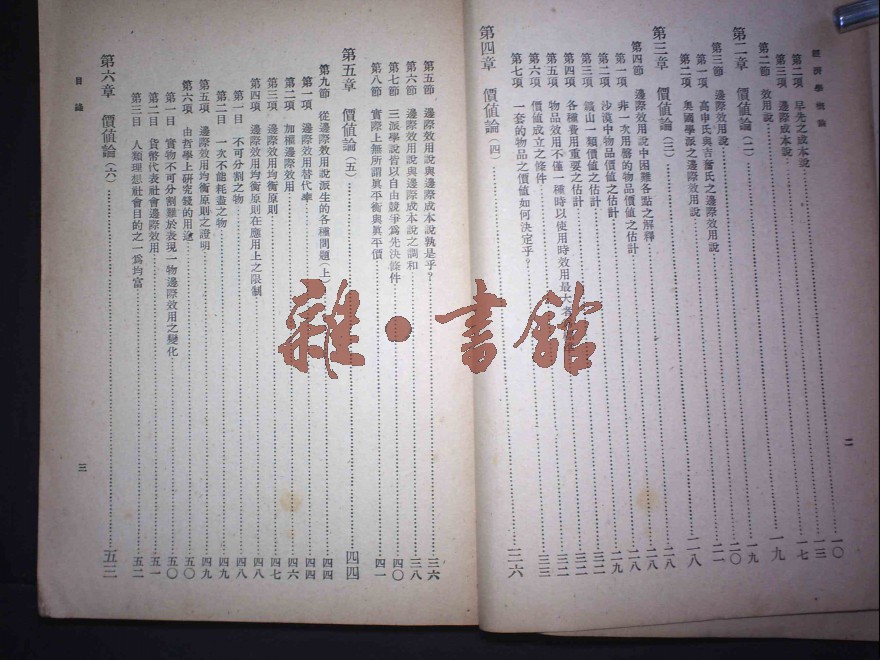 經濟學概論
二
第二項 早先之成本說 一三
第三項 邊際成本說 一七
第二節 效用說 一九
第二章 價值論(二) 一九
第三節 邊際效用說 二〇
第一項 高申氏與吉奮氏之邊際效用說 二一
第二項 奧國學派之邊際效用說 二八
第三章 價值論(三) 二八
第四節 邊際效用說中困難各點之解釋 二八
第一項 非一次用罄的物品價值之估計 二八
第二項 沙漠中物品價值之估計 二九
第三項 鑛山一類價值之估計 三二
第四項 各種費用重要之估計 三二
第五項 物品效用不僅一種時以使用時效用最大者
第六項 價值成立之條件 三三
第七項 一套的物品之價值如何決定乎?
第四章 價值論(四) 三六
第五節 邊際效用說與邊際成本說孰是乎? 三六
第六節 邊際效用說與邊際成本說之調和 三八
第七節 三派學說皆以自由競爭爲先決條件 四〇
第八節 實際上無所謂眞平衡與眞平價 四一
第五章 價值論(五) 四四
第九節 從邊際效用說派生的各種問題(上) 四四
第一項 邊際效用替代率 四四
第二項 加種邊際效用 四六
第三項 邊際效用均衡原則 四七
第四項 邊際效用均衡原則在應用上之限制 四八
第一目 不可分割之物 四八
第二目 一次不能耗盡之物 四九
第五項 邊際效用均衡原則之證明 四九
第六項 由哲學上研究錢的用途 五〇
第一目 實物不可分割難於表現一物邊際效用之變化 五〇
第二目 貨幣代表社會邊際效用 五一
第三目 人類理想社會目的之一爲均富 五二
第六章 價值論(六) 五三
目錄
三
雜·書館